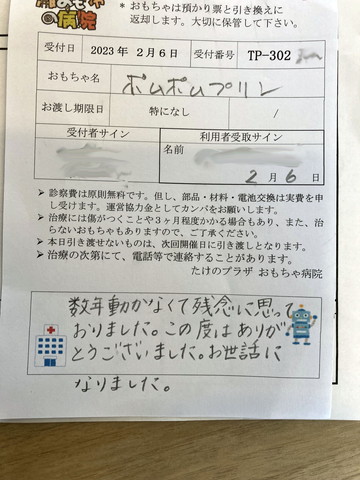 の病院
* おもちゃは預かり票と引き換えに
返却します。大切に保管して下さい。
受付日 2023年2月6日 受付番号 TP-302
おもちゃ名 ポムポムプリン
お渡し期限日 特になし /
受付者サイン 利用者受取サイン
名前
2月6日
➢ 診察費は原則無料です。但し、部品・材料・電池交換は実費を申
し受けます。運営協力金としてカンパをお願いします。
➢ 治療には傷がつくことや3ヶ月程度かかる場合もあり、また、治
らないおもちゃもありますので、ご了承ください。
➢ 本日引き渡せないものは、次回開催日に引き渡しとなります。
➢ 治療の次第にて、電話等で連絡することがあります。
たけのプラザ おもちゃ病院
数年動かなくて残念に思って
おりました。この度はありが
とうございました。お世話に
なりました。